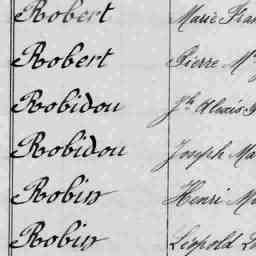 Robert Marie Fran
Robert Pierre M
Robidou Jh Alexis
Robidou Joseph Ma
Robin Henri M
Robin Léopold L